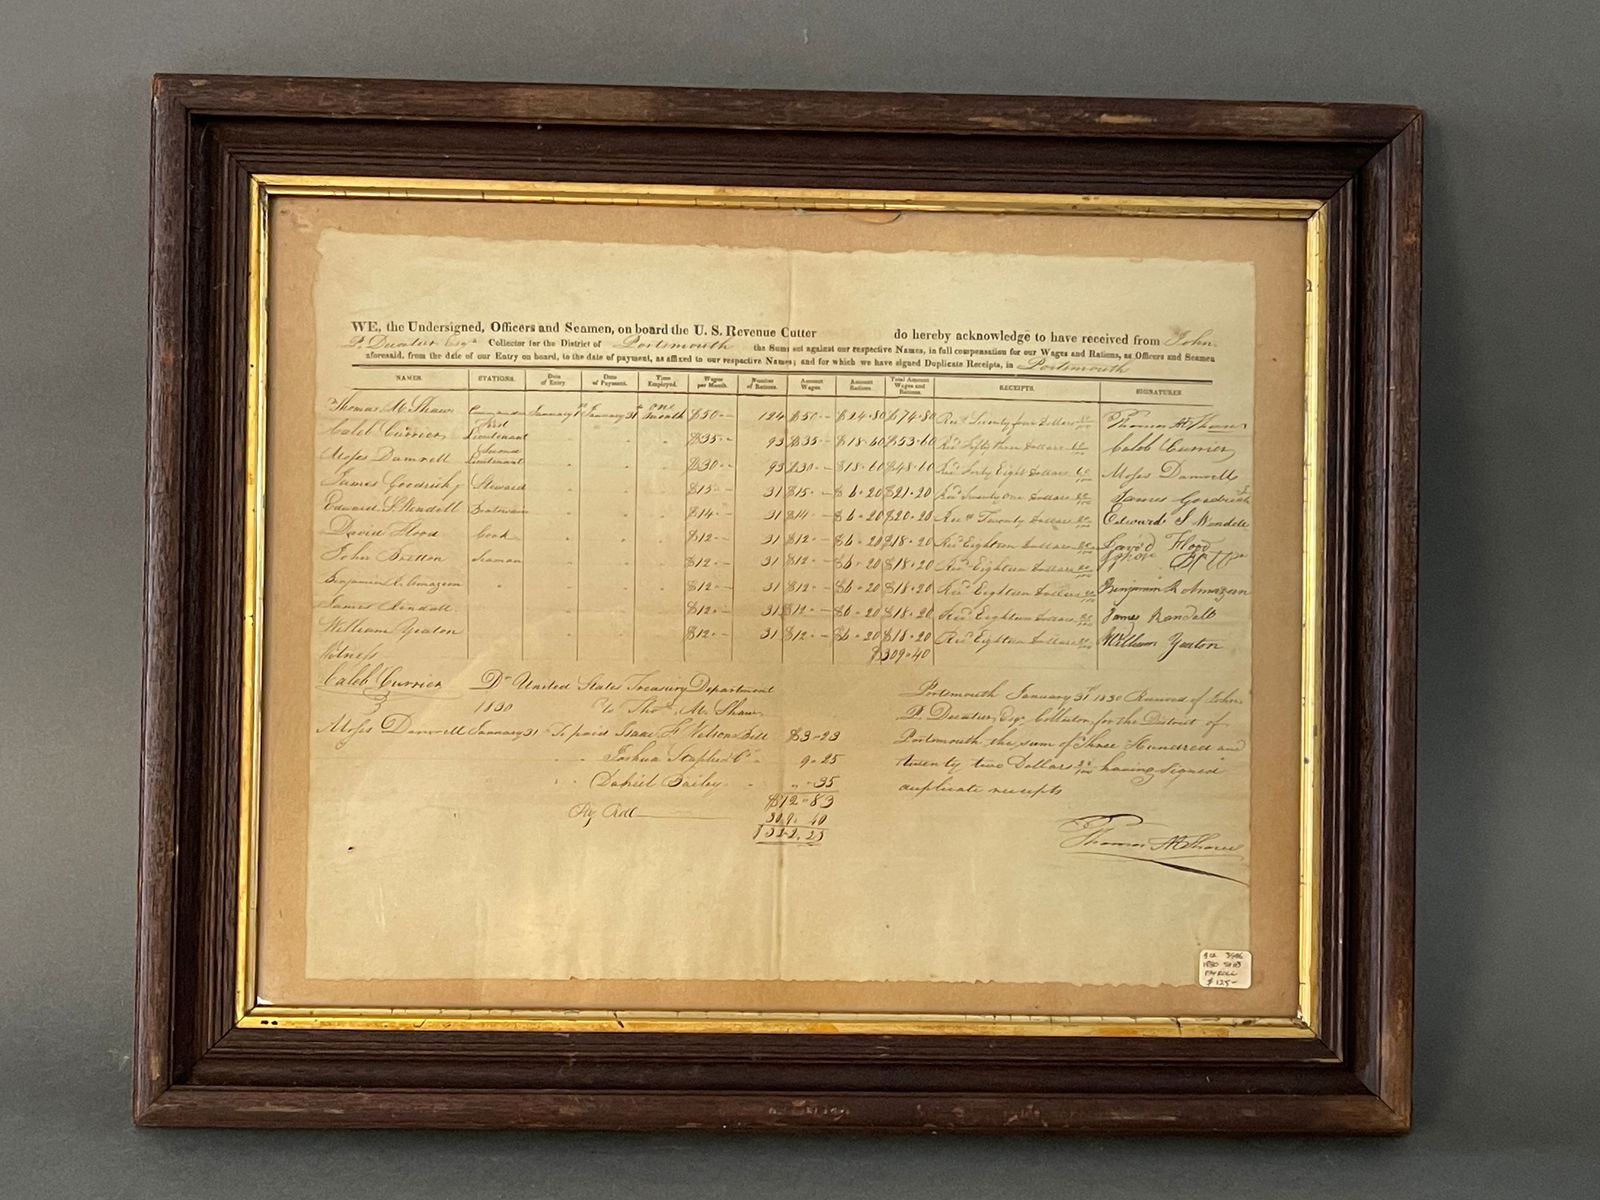 WE, the Undersigned, Officers and Seamen, on board the U. S. Revenue Cutter do hereby acknowledge to have received from John
P. Decatur Esqr Collector for the District of Portsmouth the Sums set against our respective Names, in full compensation for our Wages and Rations, as Officers and Seamen
aforesaid, from the date of our Entry on board, to the date of payment, as affixed to our respective Names; and for which we have signed Duplicate Receipts, in Portsmouth
NAMES. STATIONS. Date of Entry. Date of Payment. Time Employed. Wages per Month. Number of Rations. Amount Wages. Amount Rations. Total Amount Wages and Rations. RECEIPTS. SIGNATURES
Thomas M. Shaw Commander January 1st January 31st one month $50 -- 124 $50 -- $24.80 $74.80 Recd Seventy four Dollars 80/100 Thomas M Shaw
Caleb Currier First Lieutenant $35 - 93 $35 - $18.60 $53.60 Recd Fifty three Dollars 60/100 Caleb Currier
Moses Damrell Second Lieutenant $30 - 93 $30 - $18.60 $48.60 Recd Forty Eight Dollars 60/100 Moses Damrell
James Goodrich Steward $15 - 31 $15 - $6.20 $21.20 Recd Twenty One Dollars 20/100 James Goodrich
Edward S. Wendell Boatswain $14 - 31 $14 - $6.20 $20.20 Recd Twenty Dollars 20/100 Edward S Wendell
David Flood Cook $12 - 31 $12 - $6.20 $18.20 Recd Eighteen Dollars 20/100 David Flood
John Seaman $12 - 31 $12 - $6.20 $18.20 Recd Eighteen Dollars 20/100 John
Benjamin R. Amazeen " $12 - 31 $12 - $6.20 $18.20 Recd Eighteen Dollars 20/100 Benjamin R Amazeen
James Randall $12 - 31 $12 - $6.20 $18.20 Recd Eighteen Dollars 20/100 James Randall
William Yeaton $12 - 31 $12 - $6.20 $18.20 Recd Eighteen Dollars 20/100 William Yeaton
Witness $309.40
Caleb Currier
Moses Damrell
Dr United States Treasury Department
1830 to Thos M. Shaw
January 31st To paid Isaac F Nelsons Bill $3-23
Joshua Staples Do - 9-25
Daniel Bailey - " - 35
$12-83
Pay Roll 309.40
$322.23
Portsmouth January 31st 1830 Received of John
P. Decatur, Esqr Collector for the District of
Portsmouth, the sum of Three Hundred and
twenty two Dollars 23/100 having signed
duplicate receipts
Thomas M Shaw
3586
1830 SHIP
PAYROLL
$125-